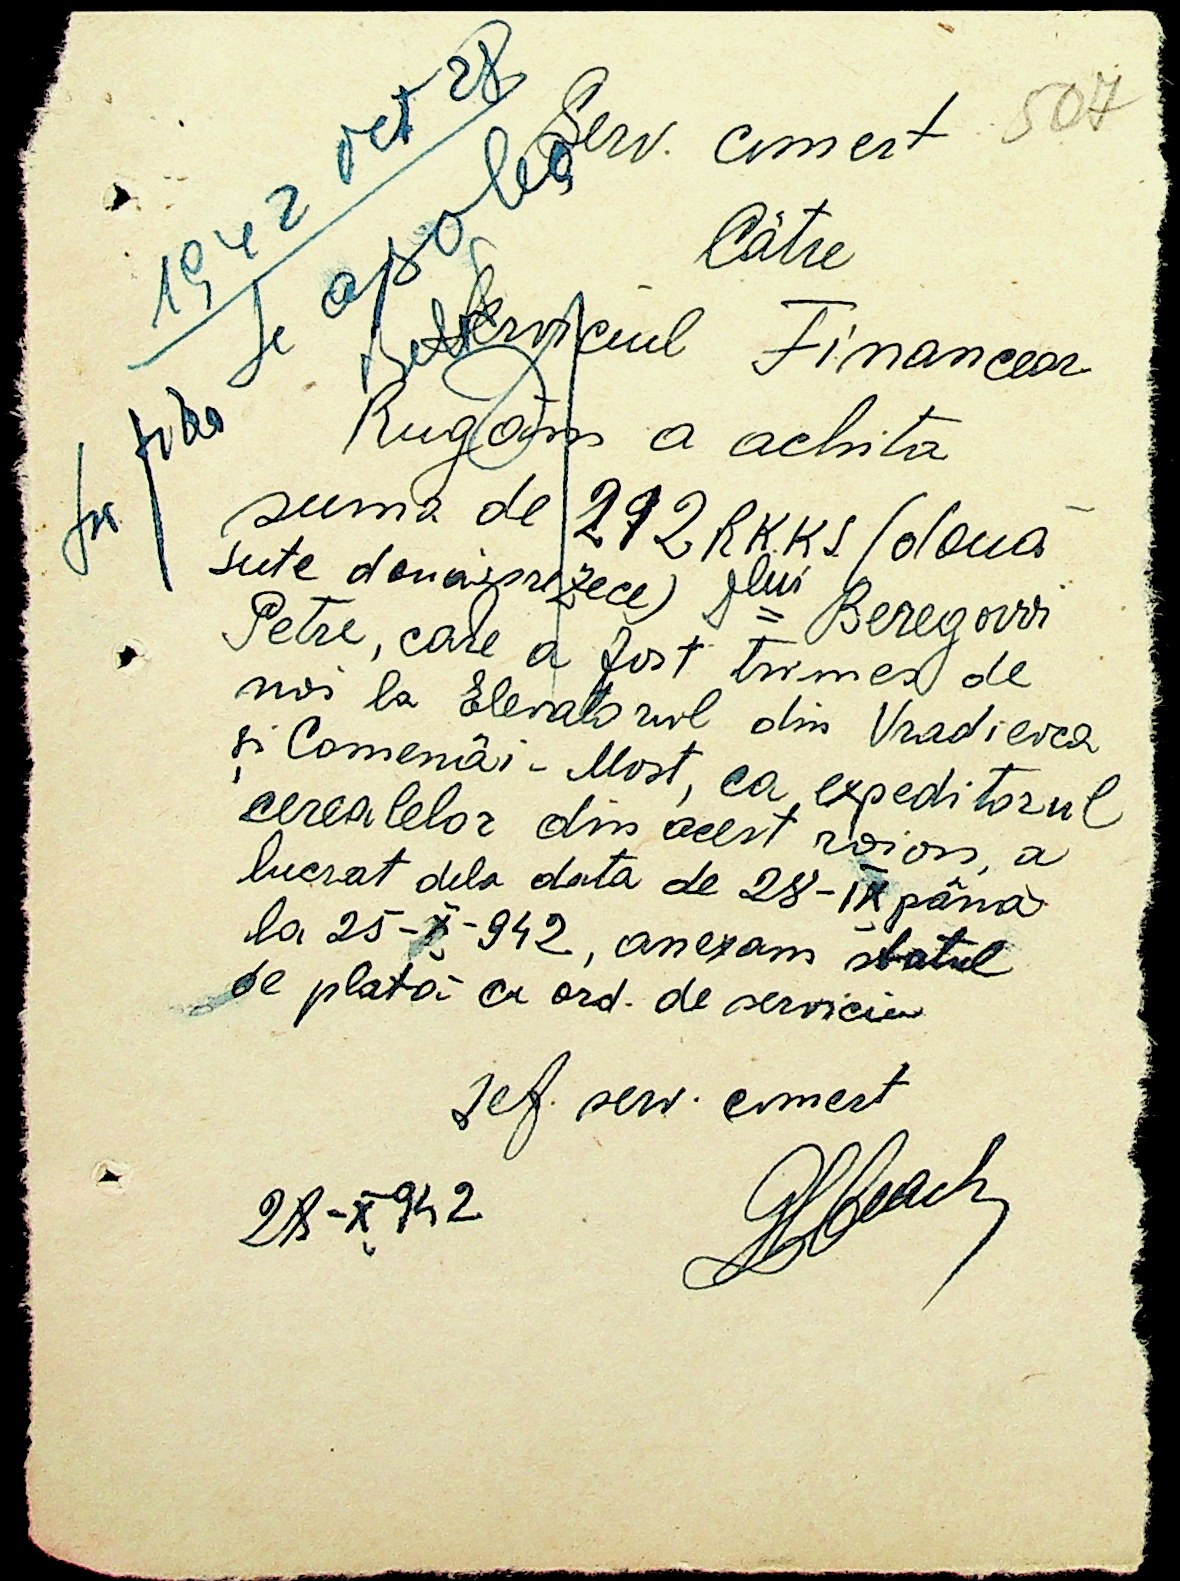 507
1942 oct 28
Se aproba
Serv. comert
Către
Serviciul Financear
Rugăm a achita
suma de 212 RKKS (două
sute douăsprezece) dlui
Beregovoi
Petre, care a fost trimes de
noi la Elevatorul din Vradievca
și Comenâi - Most, ca expeditorul
cerealelor din acest raion, a
lucrat dela data de 28-IX până
la 25-X-942, anexam statul
de plată cu ord. de serviciu
Șef. serv. comert
28-X 942